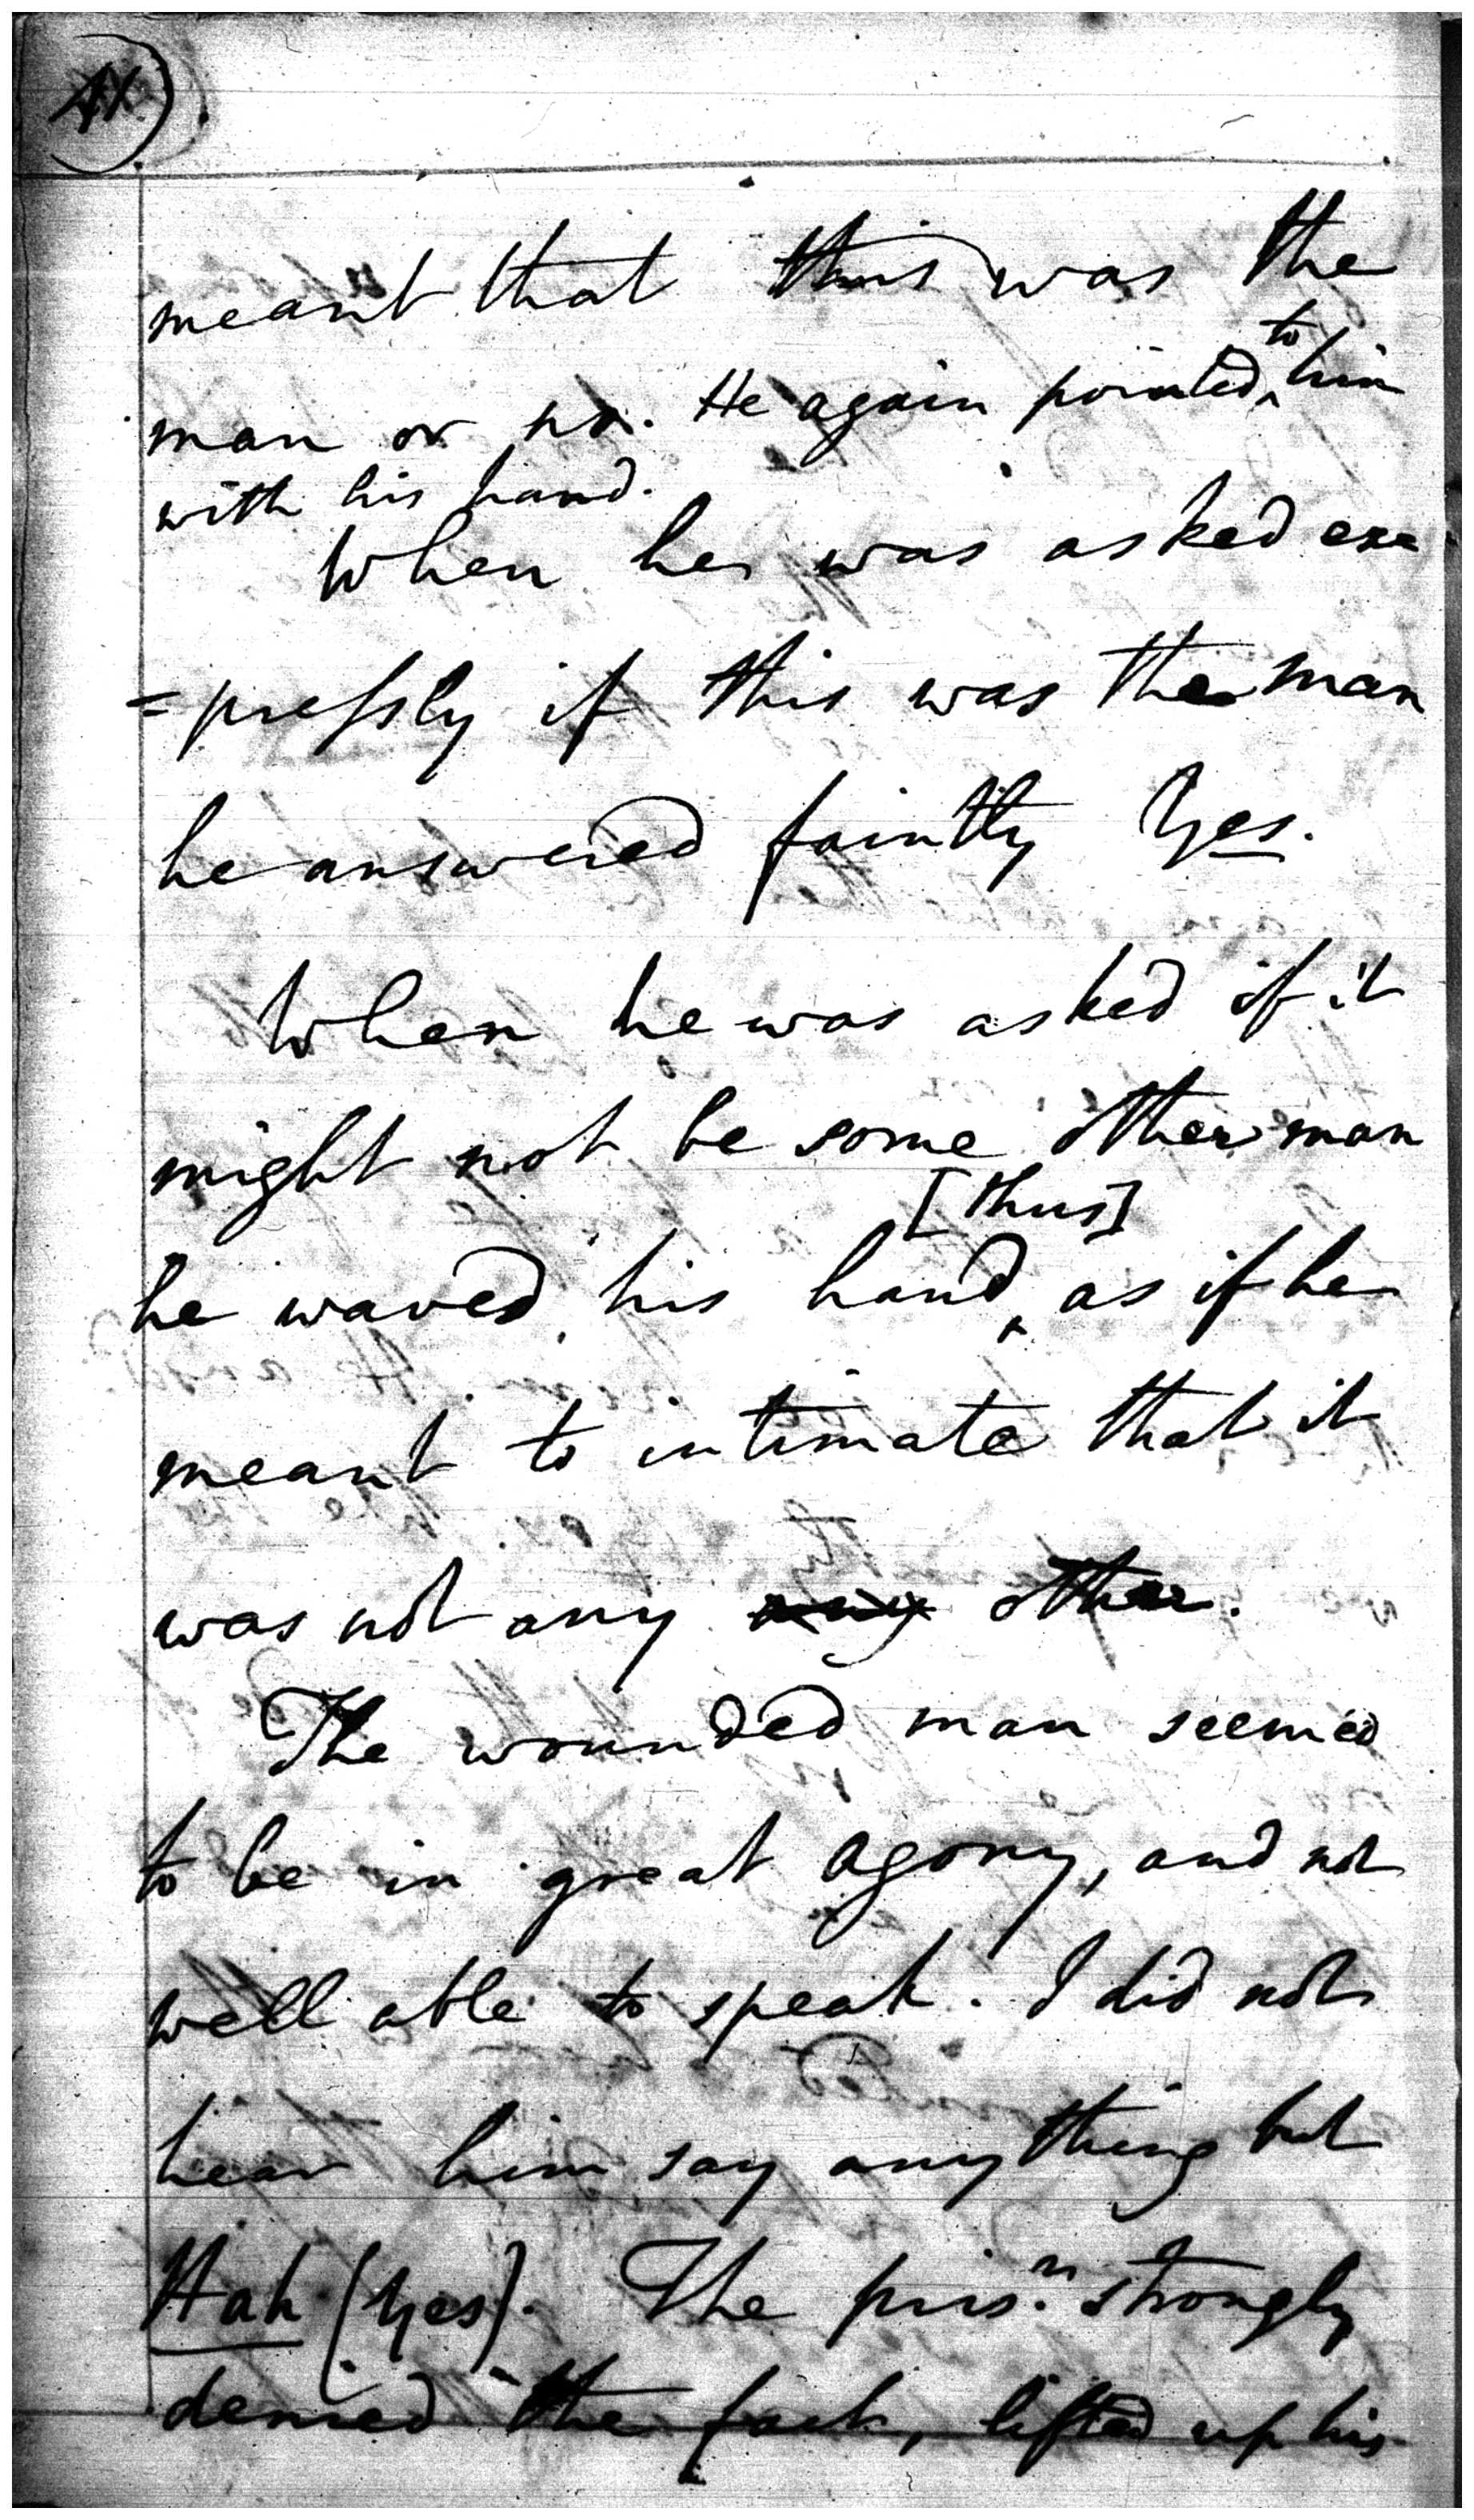 meant that this was the
man or no. He again pointed to him
with his hand.
When he was asked ex=
=pressly if this was the man
he answered faintly Yes.
When he was asked if it
might not be some other man
he waved his hand [thus] as if he
meant to intimate that it
was not any any other.
The wounded man seemed
to be in great agony, and not
well able to speak. I did not
hear him say anything but
Hah (Yes). The prisn. strongly
denied the fact, lifted up his